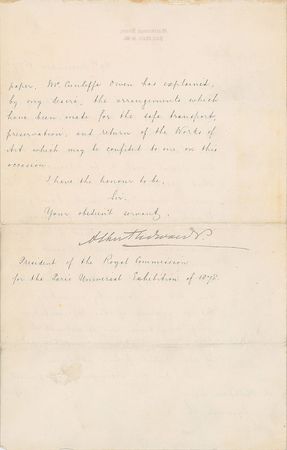 paper, Mr. Cunliffe Owen has explained,
by my desire, the arrangements which
have been made for the safe transport,
preservation, and return of the Works of
Art which may be confided to me on this
occasion.
I have the honour to be,
Sir.
Your obedient servant,
Albert Edward P.
President of the Royal Commission
for the Paris Universal Exhibition of 1878.